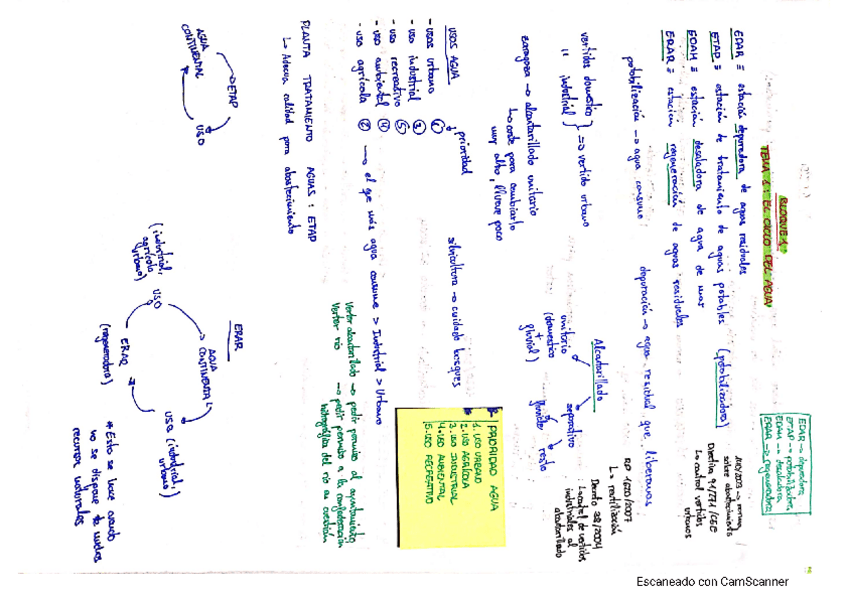 BLOQUE 1º
TEMA 1: EL CICLO DEL AGUA
EDAR → depuradora
ETAP → potabilizadora
EDAM → desaladora
ERAR → regeneradora
EDAR ≡ estación depuradora de aguas residuales
ETAP ≡ estación de tratamiento de aguas potables (potabilizadora)
EDAM ≡ estación desaladora de agua de mar
ERAR ≡ estación regeneración de aguas residuales
sobre abastecimiento
Directiva 91/271/CEE
↳ control vertidos urbanos
potabilización → agua consumo
depuración → agua residual que liberamos
RD 1620/2007
↳ reutilización
vertido domestico
" industrial } => vertido urbano
Alcantarillado
unitario
(domestico
+
pluvial)
separativo
pluviales
resto
Decreto 38/2004
↳ control de vertidos
industriales al
alcantarillado
zaragoza → alcantarillado unitario
↳ coste para cambiarlo
muy alto, llueve poco
USOS AGUA
prioridad
- usos urbano ①
- uso industrial ③
- uso recreativo ⑤
- uso ambiental ④
- uso agrícola ② → el que más agua consume > Industrial > Urbano
silvicultura → cuidado bosques
PRIORIDAD AGUA
1. USO URBANO
2. USO AGRÍCOLA
3. USO INDUSTRIAL
4. USO AMBIENTAL
5. USO RECREATIVO
Verter alcantarillado → pedir permiso al ayuntamiento
Verter río → pedir permiso a la confederación
hidrográfica del río en cuestión
PLANTA TRATAMIENTO AGUAS: ETAP
↳ Adecua calidad para abastecimiento
AGUA
CONTINENTAL
ETAP
USO
EDAR
AGUA
CONTINENTAL
USO
(industrial,
agrícola
urbano)
USO (industrial,
urbano)
ERAR
(regeneradora)
* Esto se hace cuando
no se dispone de muchos
recursos naturales
Escaneado con CamScanner